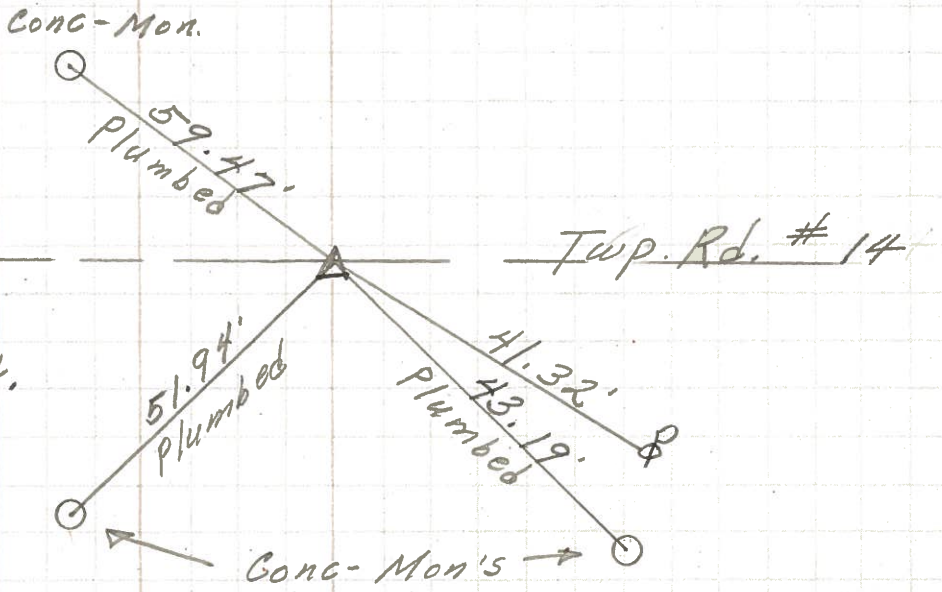 Conc-Mon.
59.47'
Plumbed
Twp. Rd. # 14
51.94'
Plumbed
41.32'
43.19'
Plumbed
P
Conc-Mon's